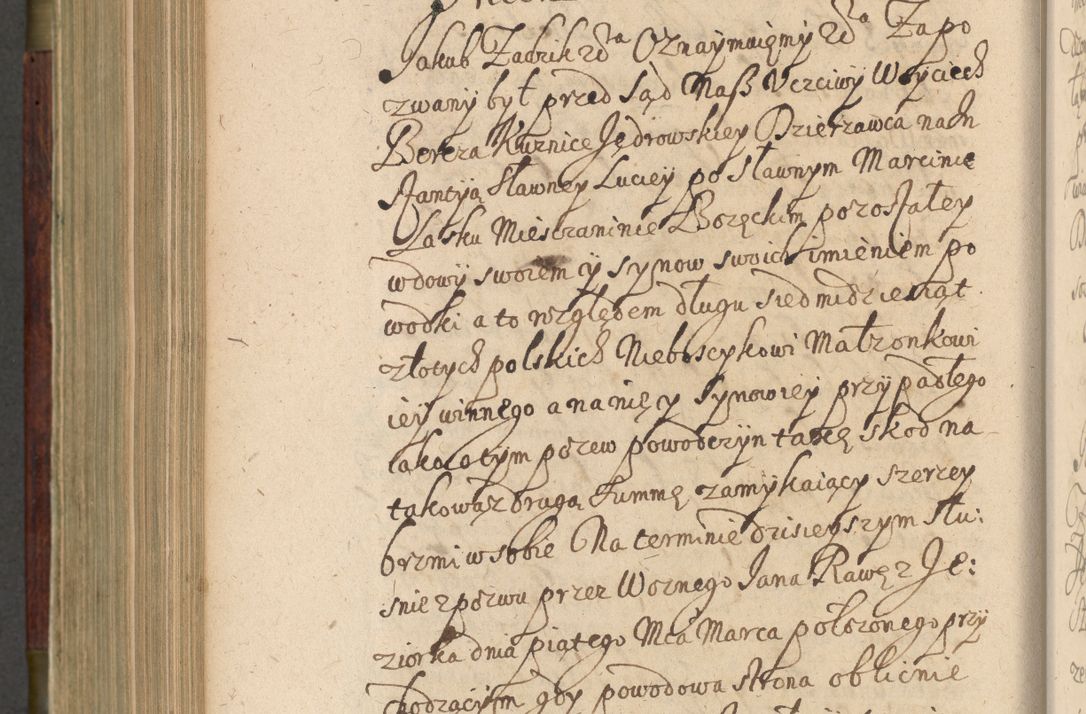 Jakub Zadzik etc Oznaymuięmy etc Zapo
zwany był przed sąd Naß Vczciwy Woyciech
Bereza Kuznice Jędrowskiey Dzierzawca na In
stantyą Sławney Luciey po Sławnym Marcinie
Lasku Miesczaninie Boręckim pozostałey
wdowy swoiem y synow swoich imieniem po
wodki a to względem długu siedmidziesiąt
złotych polskich Nieboscykowi Małzonkowi
iey winnego a na nię y synow iey przypadłego
iako o tym pozew powodczyn także skod na
takowasz drugą summę zamykaiący szerzey
brzmi w sobie Na terminie dzisieyszym słu:
snie z pozwu przez Woznego Jana Rawę z Je:
ziorka dnia piątego Mca Marca położonego przy
chodzącym gdy powodowa strona oblicnie